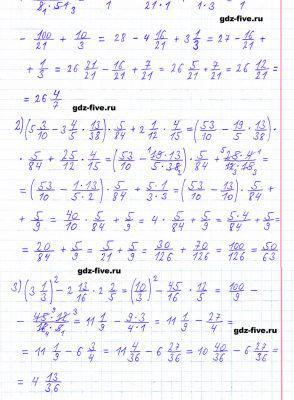 8·5 1 21·1 1·3 1
gdz-five.ru
- 100/21 + 10/3 = 28 - 4 16/21 + 3 1/3 = 27 - 16/21 +
+ 1/3 = 26 21/21 - 16/21 + 7/21 = 26 5/21 + 7/21 = 26 12/21 =
= 26 4/7 gdz-five.ru
2) (5 3/10 - 3 4/5 · 13/38) · 5/84 + 2 1/12 · 4/15 = (53/10 - 19/5 · 13/38) ·
· 5/84 + 25/12 · 4/15 = (53/10 - 19·13/5·38) · 5/84 + 25·4/12·15 =
gdz-five.ru
= (53/10 - 1·13/5·2) · 5/84 + 5·1/3·3 = (53/10 - 13/10) · 5/84 +
+ 5/9 = 40/10 · 5/84 + 5/9 = 4 · 5/84 + 5/9 = 5·4/84 + 5/9 =
= 20/84 + 5/9 = 5/21 + 5/9 = 30/126 + 70/126 = 100/126 = 50/63
gdz-five.ru
3) (3 1/3)² - 2 13/16 · 2 2/5 = (10/3)² - 45/16 · 12/5 = 100/9 -
- 45·12/16·5 = 11 1/9 - 9·3/4·1 = 11 1/9 - 27/4 =
gdz-five.ru
= 11 1/9 - 6 3/4 = 11 4/36 - 6 27/36 = 10 40/36 - 6 27/36 =
= 4 13/36 gdz-five.ru